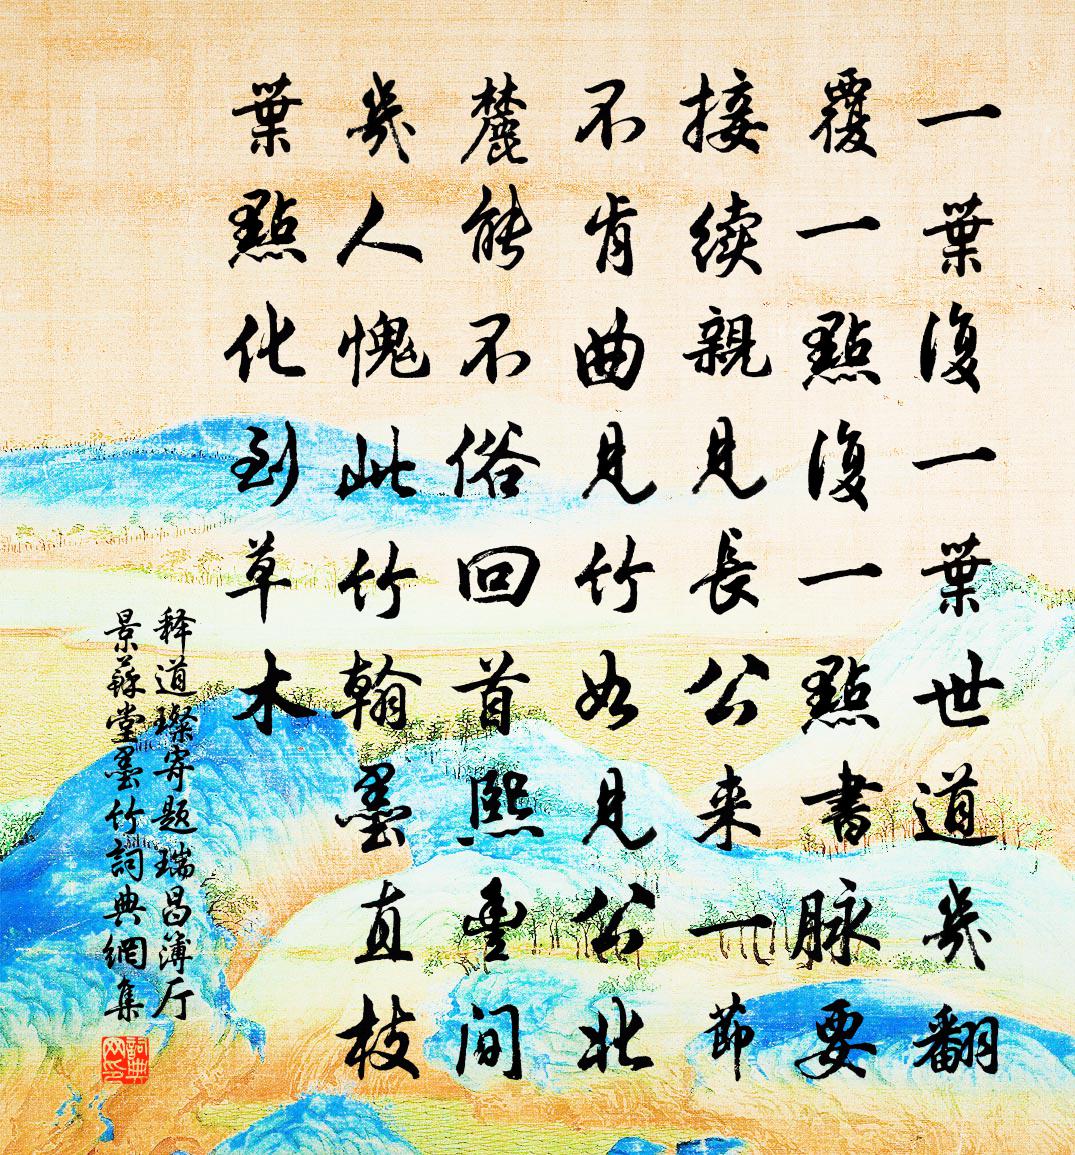 一葉復一葉世道幾翻
覆一點復一點書脉要
接续親見長公来一節
不肯曲見竹如見公北
麓能不俗回首熙豐间
幾人愧此竹翰墨直枝
葉點化到草木
释道璨寄题瑞昌薄厅
景蘇堂墨竹詞典網集